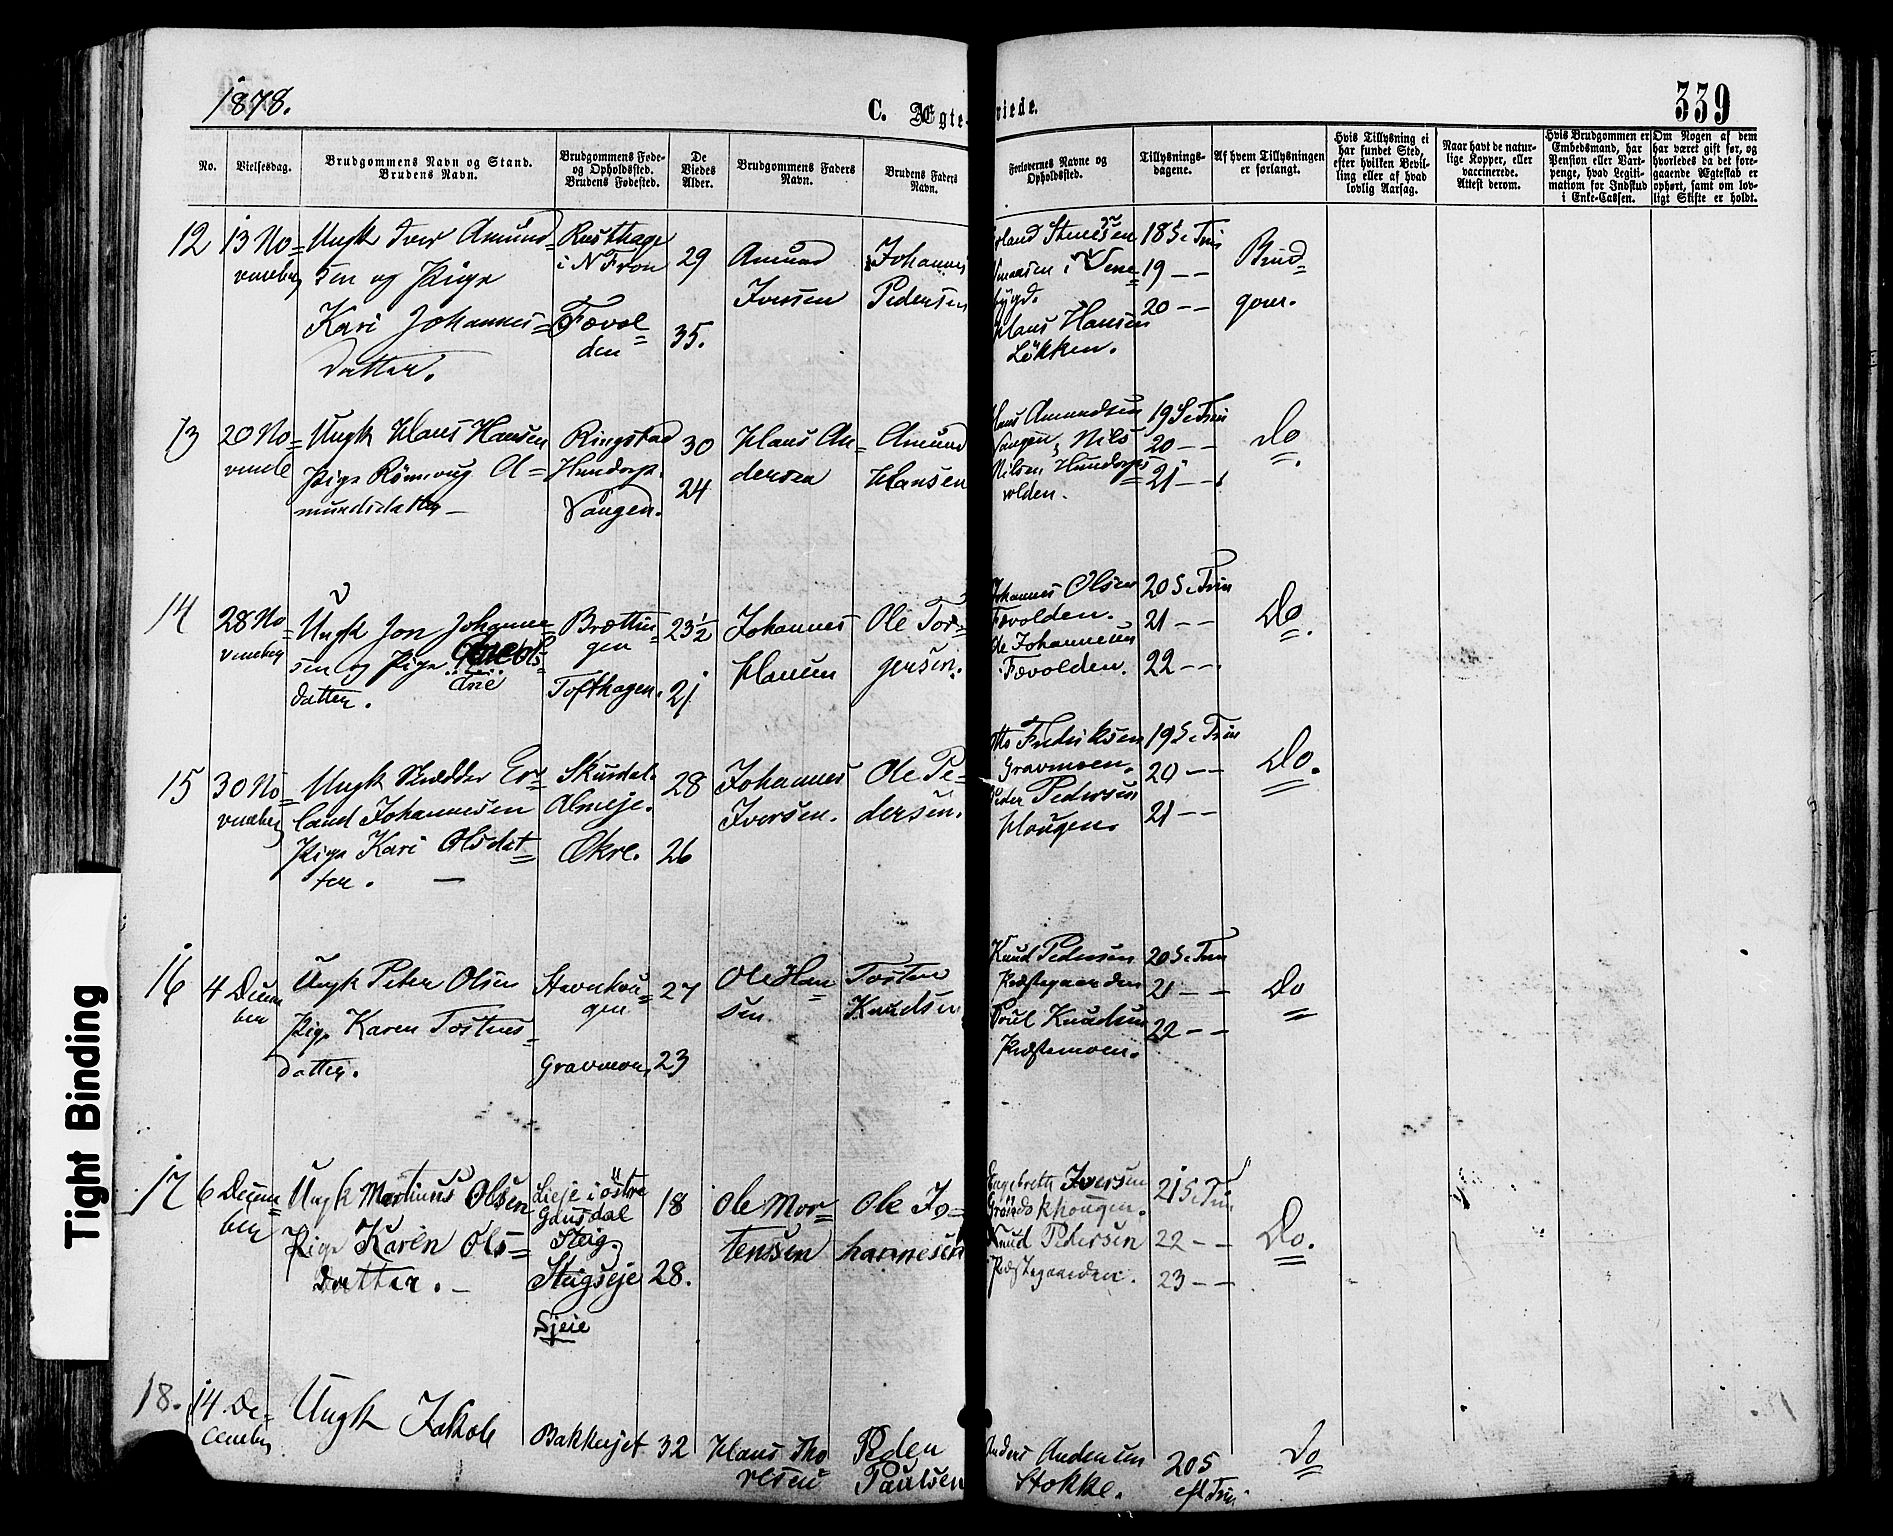 1878.
C. Ægte
viede.
339
No.
Vielsesdag.
Brudgommens Navn og Stand.
Brudens Navn.
Brudgommens Føde-
og Opholdssted.
Brudens Fødested.
De
Viedes
Alder.
Brudgommens Faders
Navn.
Brudens Faders
Navn.
Forlovernes Navne og
Opholdssted.
Tillysnings-
dagene.
Af hvem Tillysningen
er forlangt.
Hvis Tillysning ei
har fundet Sted,
efter hvilken Bevil-
ling eller af hvad
lovlig Aarsag.
Naar havt de natur-
lige Kopper, eller
vaccinerede.
Attest derom.
Hvis Brudgommen er
Embedsmand, har
Pension eller Vart-
penge, hvad Legiti-
mation for Indskud
i Enke-Cassen.
Om Nogen af dem
har været gift før, og
hvorledes da det fore-
gaaende Ægteskab er
ophørt, samt om lov-
ligt Skifte er holdt.
12
13 No=
vember
Ungk Iver Amund=
sen og Pige
Kari Johannes=
datter.
Rusthage
i N Fron
Fævol=
den
29
35.
Amund
Iversen
Johannes
Pedersen
i Vene=
bygd.
Hans Hansen
Løkken.
18 S e Trin
19 — —
20 — —
Brud=
gom.
13
20 No=
vembe
Ungk Hans Hansen
Pige Rønnaug A=
mundsdatter —
Ringstad
Hundorp.
Vangen.
30
24
Hans An=
dersen
Amund
Hansen
Hans Amundsen
Vangen, Nils
Nilsen Hundorps=
volden.
19 S e Trin
20 — —
21 — —
Do.
14
28 No=
vember
Ungk Jon Johanne=
sen og Pige Ols=
datter.
Brættin=
gen
Tofthagen.
23½
21
Johannes
Hansen
Ole Tor=
gersen.
Johannes Olsen
Fævolden.
Ole Johannesen
Fævolden.
20 S e Trin
21 — —
22 — —
Do.
15
30 No=
vember
Ungk Skrædder Er=
land Johannesen
Pige Kari Olsdat=
ter. —
Skurdal.
Almeje.
Økre.
28
26
Johannes
Iversen.
Ole Pe=
dersen.
Otto Fredriksen
Gravmoen.
Peder Pedersen
Haugen.
19 S e Trin
20 — —
21 — —
Do.
16
4 Decem
ber
Ungk Peter Olsen
Pige Karen Tostens=
datter.
Stavnhau=
gen
Gravmoen.
27
23
Ole Han=
sen
Tosten
Knudsen
Knud Pedersen
Præstegaarden
Poul Knudsen
Præstemoen.
20 S e Trin
21 — —
22 — —
Do
17
6 Decem=
ber
Ungk Martinus Olsen
Pige Karen Ols=
datter. —
Lieje i östre
Gausdal
Steig.
Steigseje
Sjeie
18
28.
Ole Mor=
tenssen
Ole Jo=
hannesen
Engebreth Iversen
Knud Pedersen
Præstegaarden.
21 S e Trin
22 — —
23 — —
Do.
18.
14 De=
cember
Ungk Jakob
Bakkejet
32
Hans Tho
resen
Peder
Paulsen
Anders Andersen
Stokke.
20 S
eft Trin
Do
Tight Binding